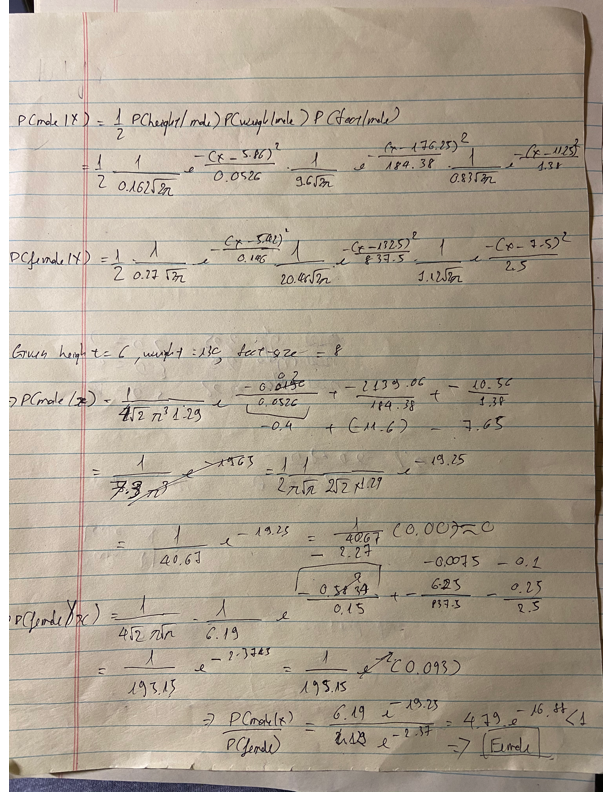 P(male|X) = 1/2 P(height/male) P(weight/male) P(foot/male)
= 1/2 1/(0.162√2π) e^(-(x-5.86)²/0.0526) · 1/(9.6√2π) e^(-(x-176.25)²/184.38) · 1/(0.83√2π) e^(-(x-11.25)²/1.38)
P(female|X) = 1/2 · 1/(0.27√2π) e^(-(x-5.42)²/0.146) · 1/(20.46√2π) e^(-(x-132.5)²/837.5) · 1/(1.12√2π) e^(-(x-7.5)²/2.5)
Given height = 6, weight = 130, foot-size = 8
⇒ P(male/x) = 1/(4√2 π³ 1.29) e^(-0.0196/0.0526 + -2139.06/184.38 + -10.56/1.38)
-0.4 + (-11.6) - 7.65
= 1/(7.3 π³) e^(-19.65) = 1/2 1/(π√π 2√2 × 1.29) e^(-19.25)
= 1/40.67 e^(-19.25) = 1/40.67 (0.00) ≈ 0
-2.27 -0.0075 - 0.1
P(female)/x) = 1/(4√2 π√π) · 1/6.19 e^(-0.3834/0.15 + -6.25/837.5 - 0.25/2.5)
= 1/195.15 e^(-2.3745) = 1/195.15 (0.093)
⇒ P(male(x)/P(female) = 6.19 e^(-19.25)/1.29 e^(-2.37) = 4.79 e^(-16.88) < 1
⇒ Female